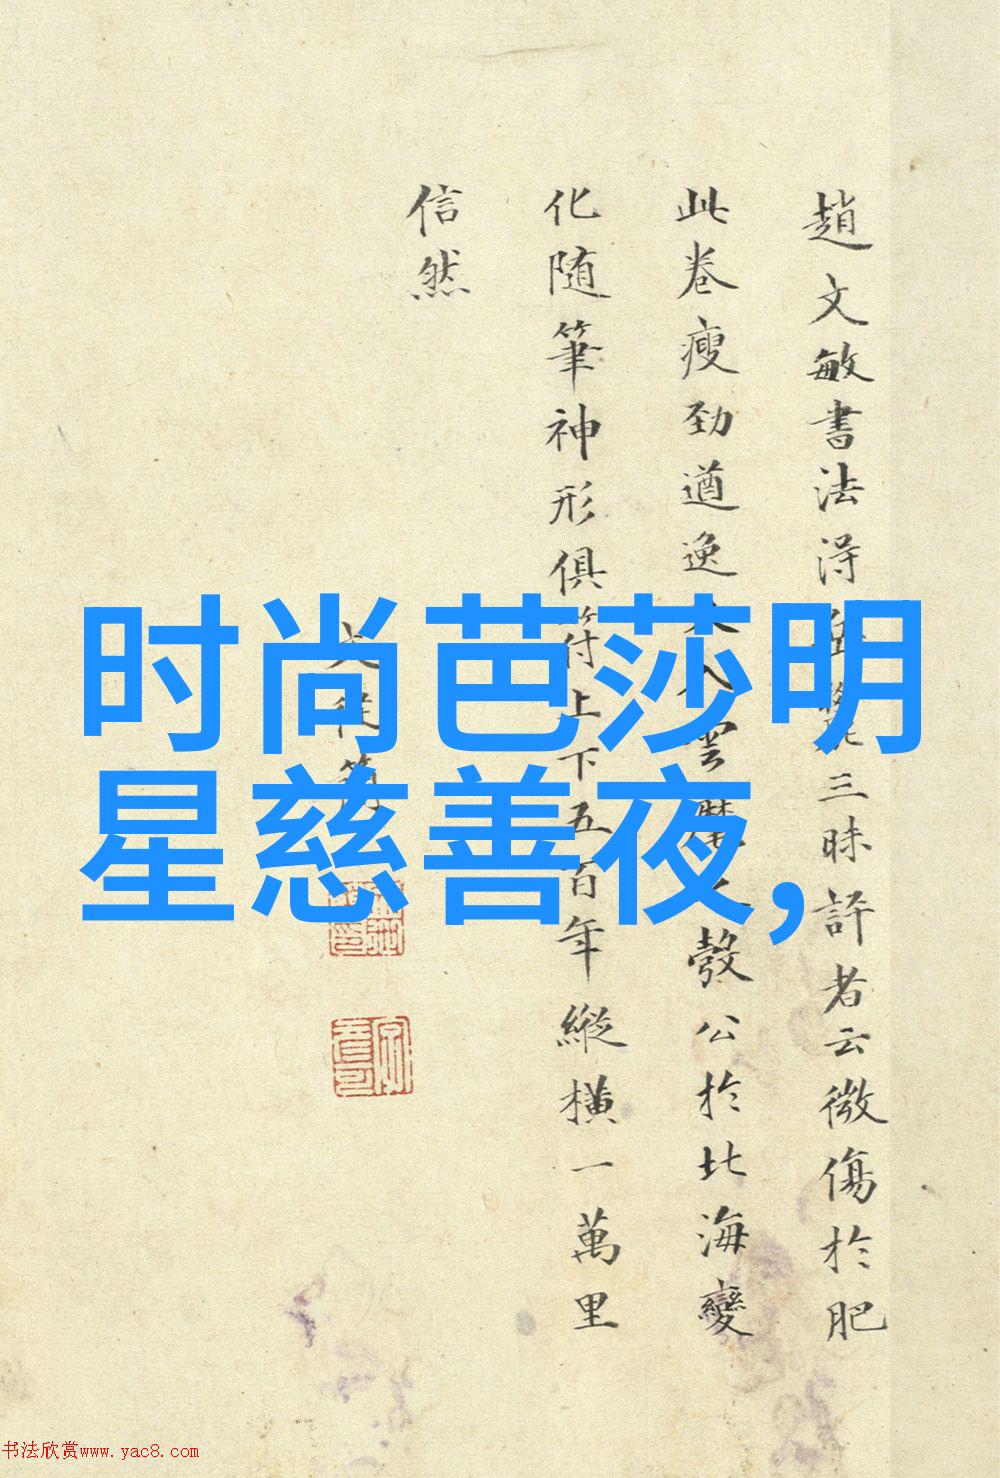 趙文敏書法得
三昧評者云微傷於肥
此卷瘦劲遒逸
雲麾
發公於北海變
化随筆神形俱符上下五百年縱橫一萬里
信然
文從簡
时尚芭莎明
星慈善夜,
书法欣赏www.yac8.com